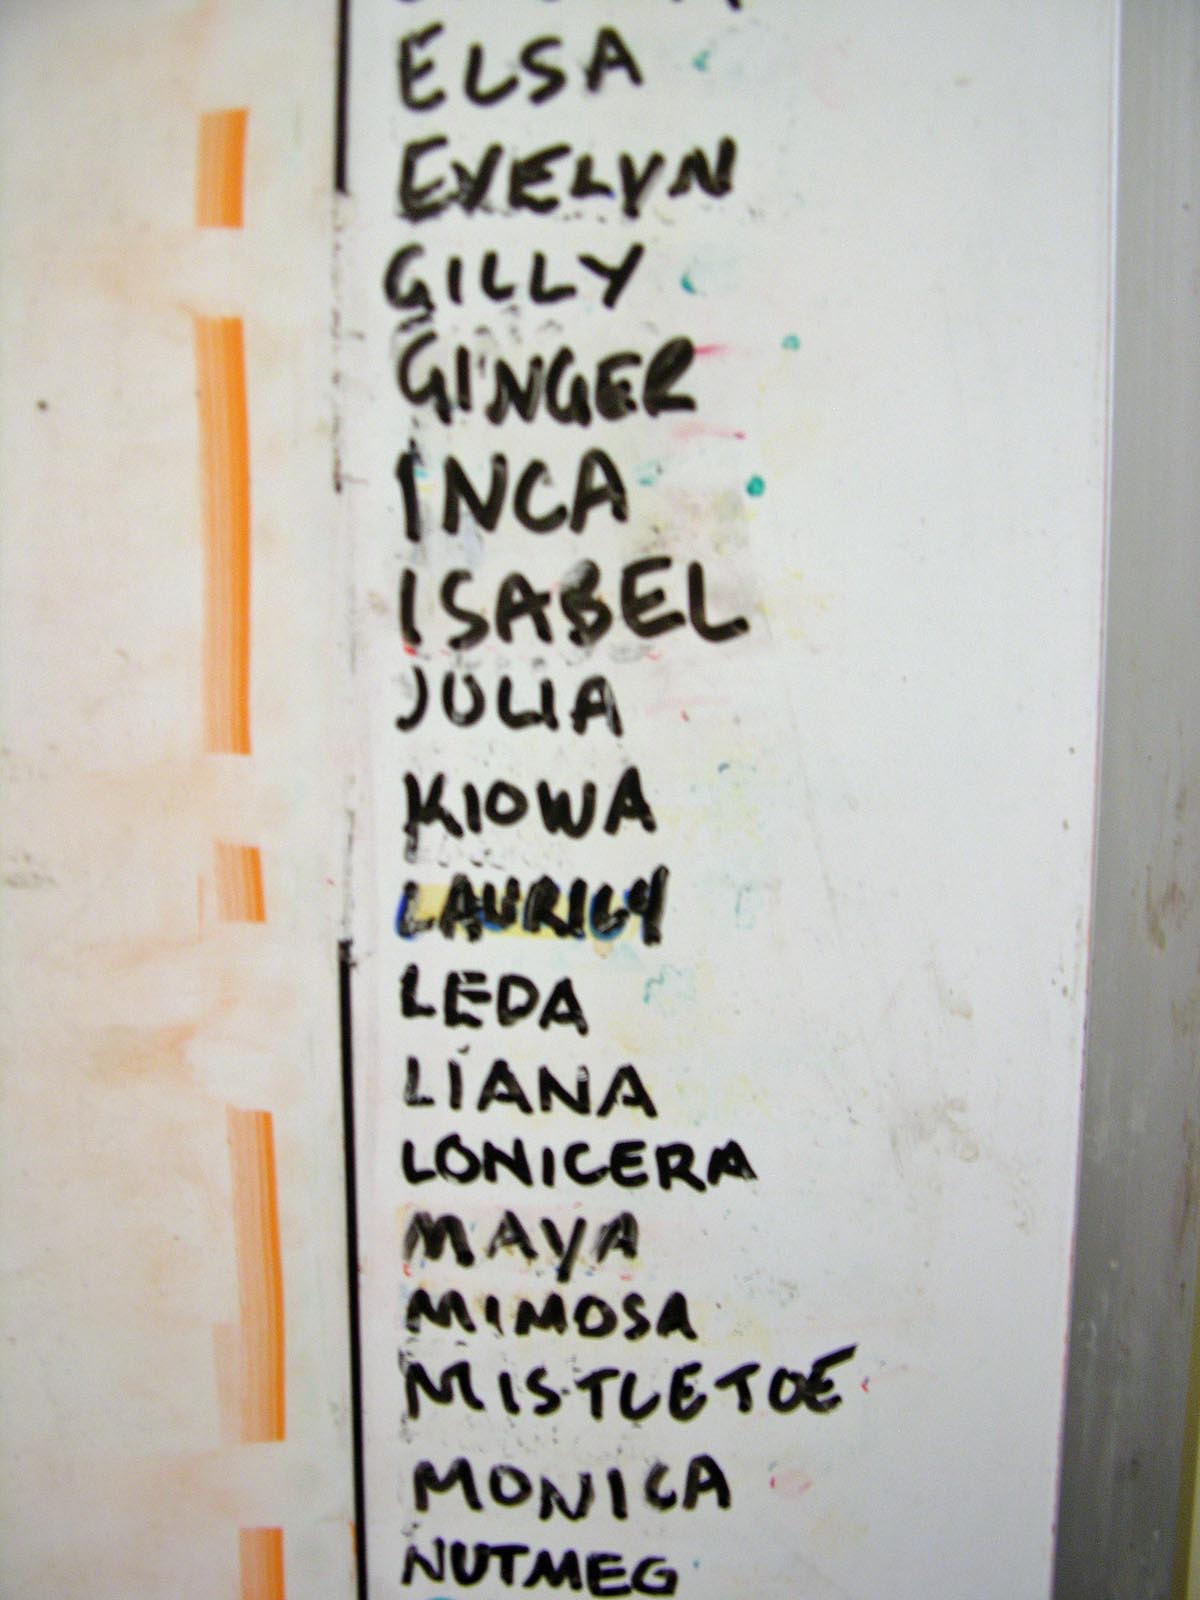 ELSA
EVELYN
GILLY
GINGER
INCA
ISABEL
JULIA
KIOWA
LEDA
LIANA
LONICERA
MAYA
MIMOSA
MISTLETOE
MONICA
NUTMEG